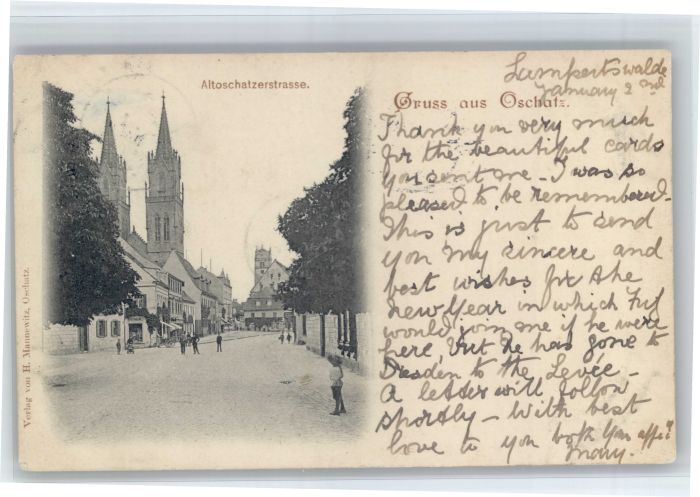 Altoschatzerstrasse.
Gruss aus Oschatz.
Verlag von H. Mannewitz, Oschatz.
Lampertswalde
January 2nd
Thank you very much
for the beautiful cards
you sent me. I was so
pleased to be remembered.
This is just to send
you my sincere and
best wishes for the
New Year in which
would join me if he were
here, but he has gone to
Dresden to the Levée –
A letter will follow
shortly – With best
love to you both Yr affte
Mary.